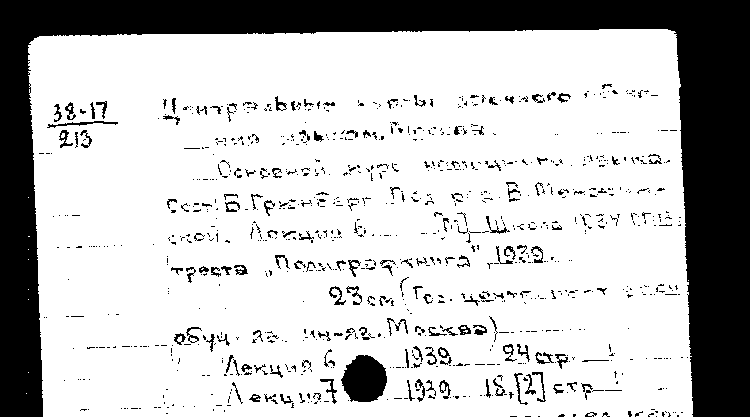 38-17
213
Центральные курсы заочного обуче-
ния языкам. Москва.
Основной курс немецкого языка.
Сост. Б. Гринберг. Под ред. В.
ской. Лекция 6. [М] Школа ФЗУ
треста „Полиграфкнига", 1939.
23 см (Гос. центр.
обуч. ин-яз. Москва)
Лекция 6 1939. 24 стр.
Лекция 7 1939. 18,[2] стр